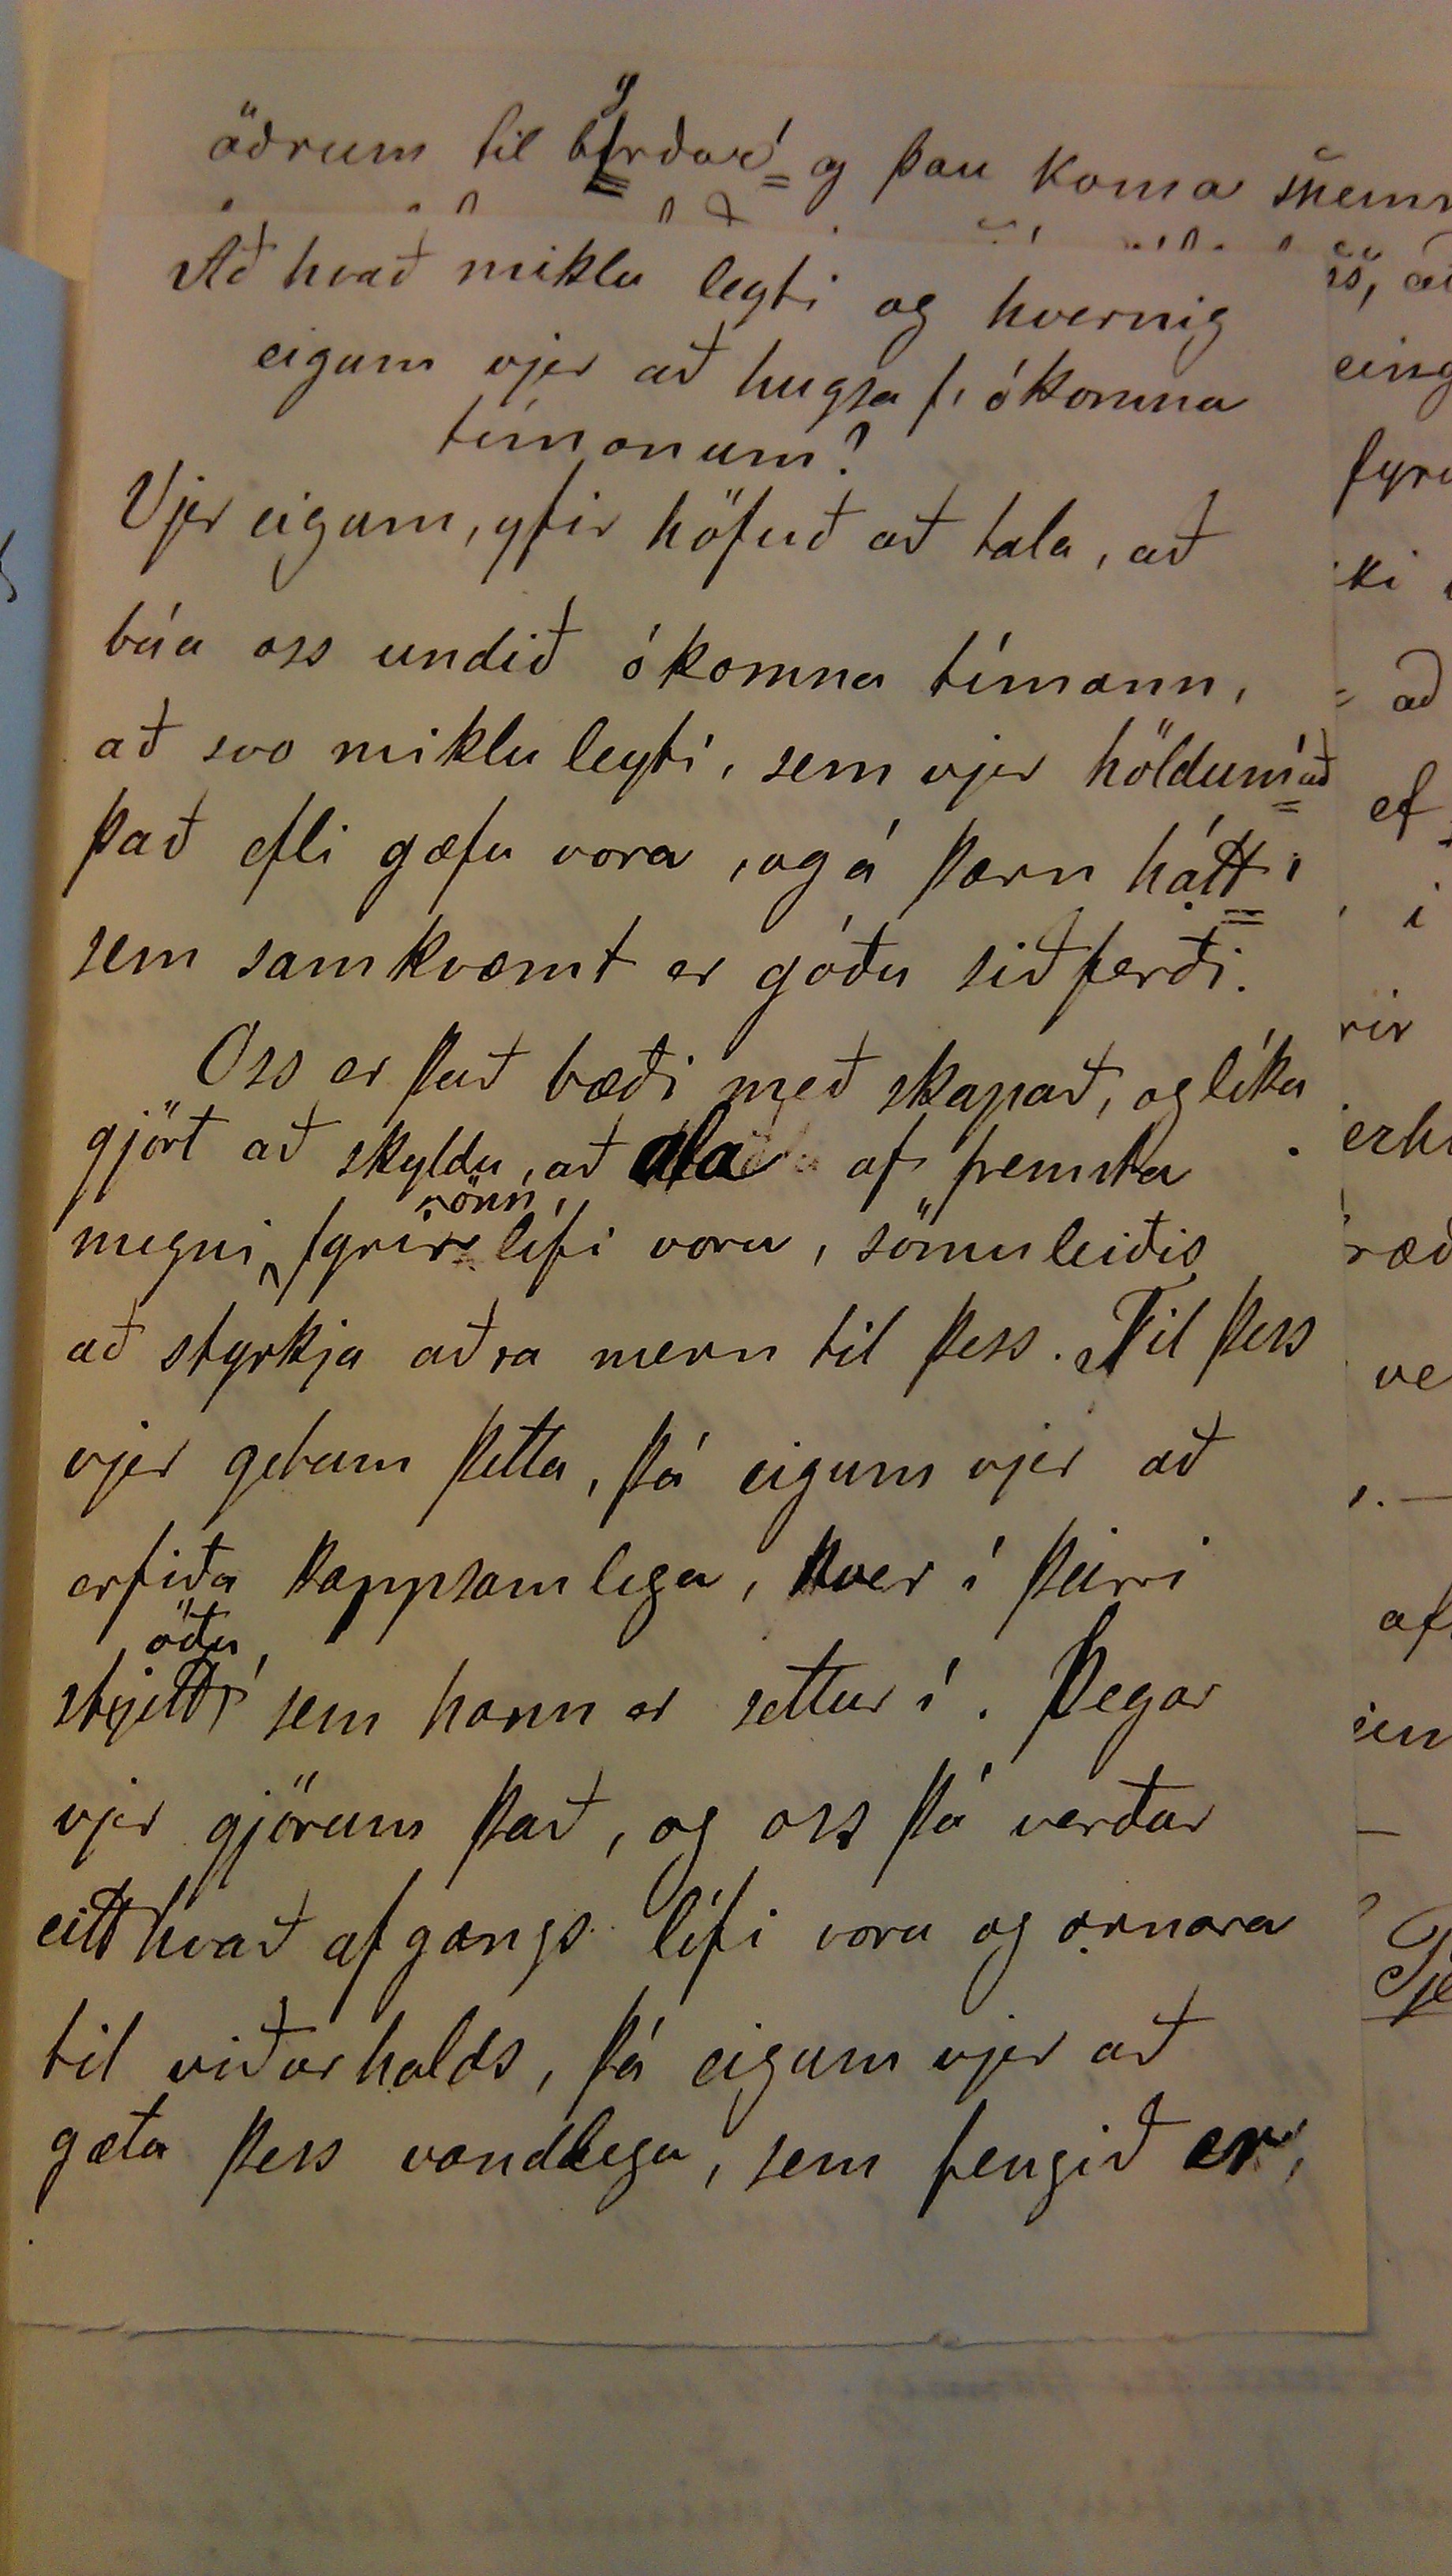 öðrum til byrðar og þau koma
Að hvað miklu leyti og hvernig
eigum vjer að hugsa f. ókomna
tímanum?
Vjer eigum, yfir höfuð að tala, að
búa oss undið ókomna tímann,
að svo miklu leyti, sem vjer höldum að
það efli gæfu vora, og á þann hátt,
sem samkvæmt er góðu siðferði.
Oss er það bæði með skapað, og líka
gjört að skyldu, að ala af fremsta
megni önn fyrir lífi voru, sömuleiðis
að styrkja aðra menn til þess. Til þess
vjer getum þetta, þá eigum vjer að
erfiða kappsamlega, hver í þeirri
stöðu sem hann er settur í. Þegar
vjer gjörum það, og oss þá verður
eitthvað afgangs lífi voru og annara
til viðurhalds, þá eigum vjer að
gæta þess vandlega, sem fengið er,
ef
i
rir
af